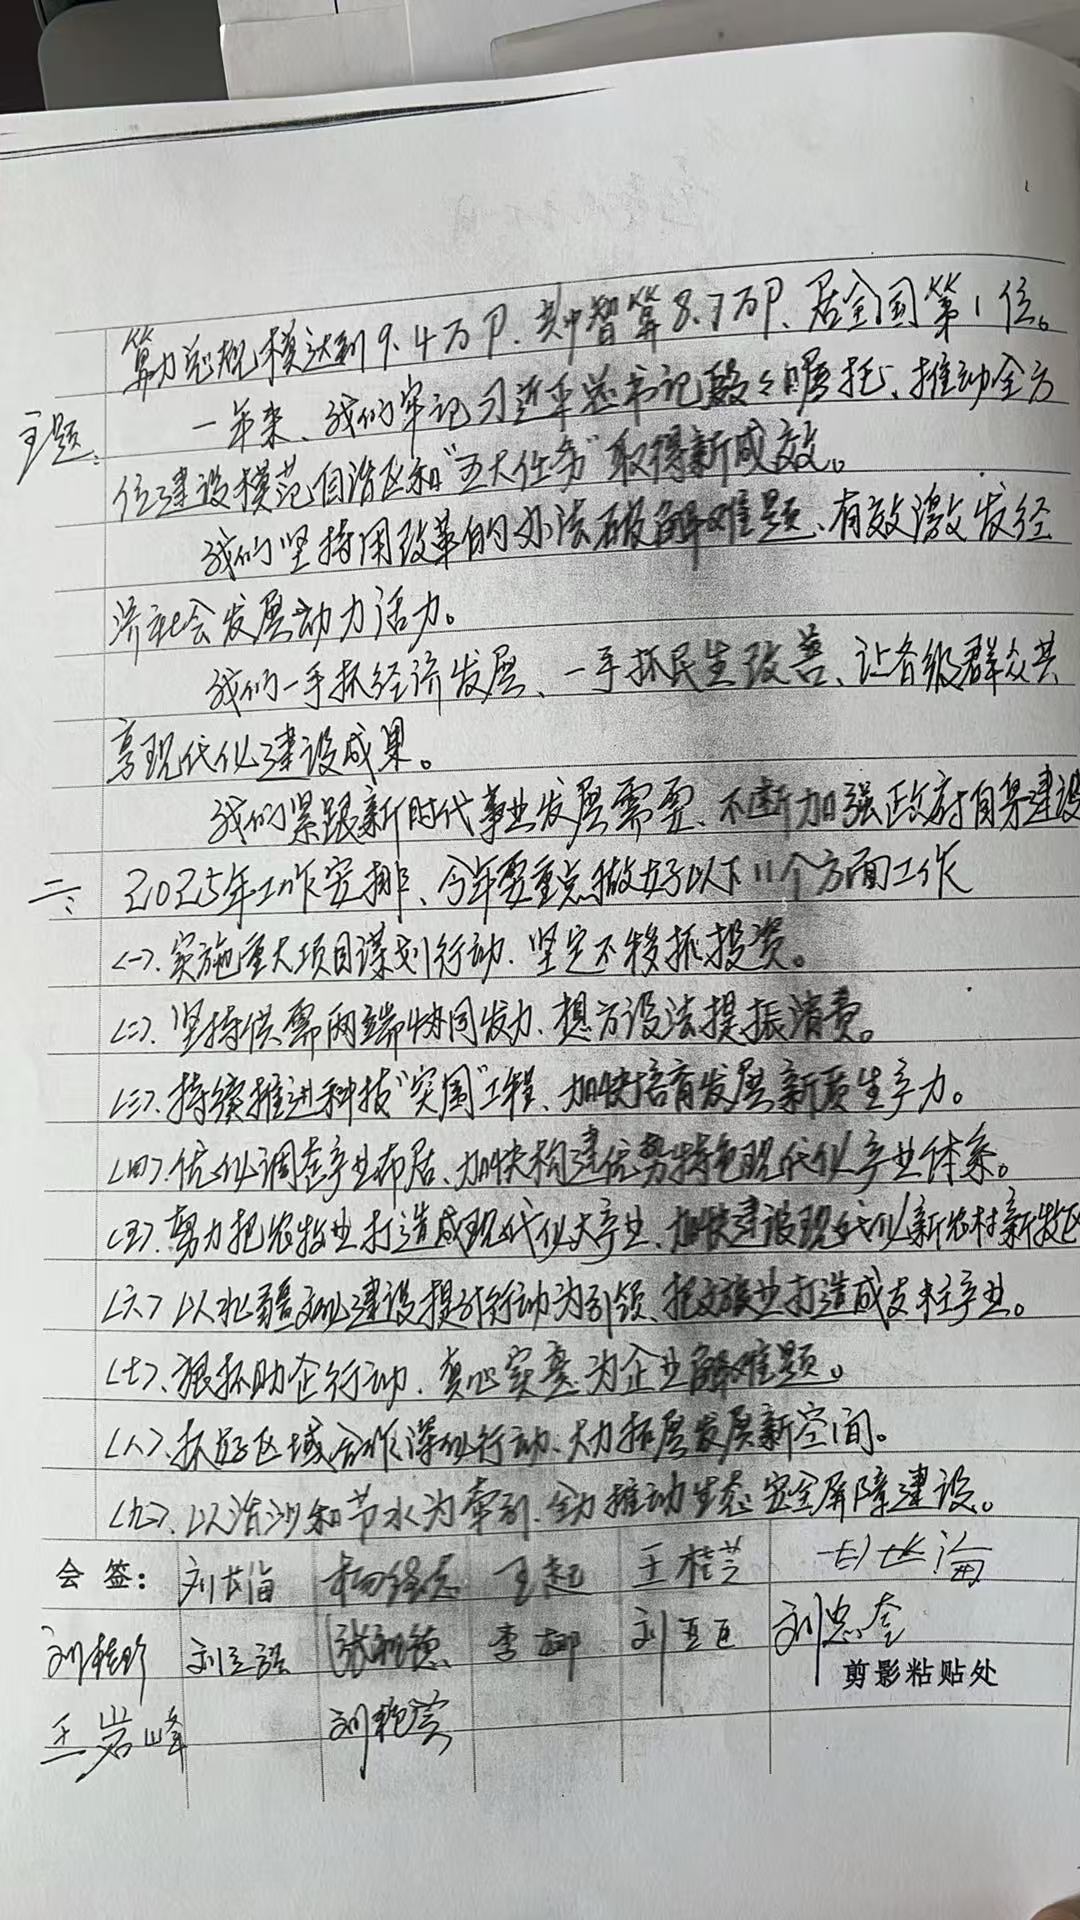 算力总规模达到9.4万P、其中智算8.7万P、居全国第1位。
主题： 一年来、我们牢记习近平总书记殷殷嘱托、推动全方
位建设模范自治区和“五大任务”取得新成效。
我们坚持用改革的办法破解难题、有效激发经
济社会发展动力活力。
我们一手抓经济发展、一手抓民生改善、让各级群众共
享现代化建设成果。
我们紧跟新时代事业发展需要、不断加强政府自身建设
二、 2025年工作安排、今年要重点做好以下11个方面工作
(一)、实施重大项目谋划行动、坚定不移抓投资。
(二)、坚持供需两端协同发力、想方设法提振消费。
(三)、持续推进科技“突围”工程、加快培育发展新质生产力。
(四)、优化调整产业布局、加快构建优势特色现代化产业体系。
(五)、努力把农牧业打造成现代化大产业、加快建设现代化新农村新牧区
(六)以北疆文化建设提升行动为引领、把文旅业打造成支柱产业。
(七)、狠抓助企行动、真心实意为企业解难题。
(八)、抓好区域合作深化行动、大力拓展发展新空间。
(九)、以治沙和节水为牵引、全力推动生态安全屏障建设。
会 签： 王起 王桂芝
刘桂珍 李娜 刘忠奎
剪影粘贴处
王岩峰 刘艳芬